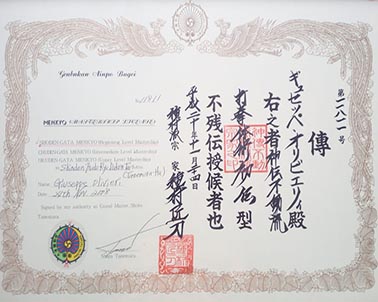 Genbukan Ninpo Bugei
MENKYO
SHODEN-GATA MENKYO (Beginning Level Mastership)
CHUDEN-GATA MENKYO (Intermediate Level Mastership)
GATA MENKYO (Upper Level Mastership)
Shinden Fudo Ryu
Name Giuseppe Olivieri
Date 24th Nov. 2008
Signed by my authority as Grand Master, Shoto
Tanemura
Shoto Tanemura
第一八二一号
傳
ギュゼッペ・オリビエーリ殿
右之者神伝不動流
打拳体術初伝型
不残伝授候者也
平成二十年十一月二十四日
種村派宗家 種村匠刀